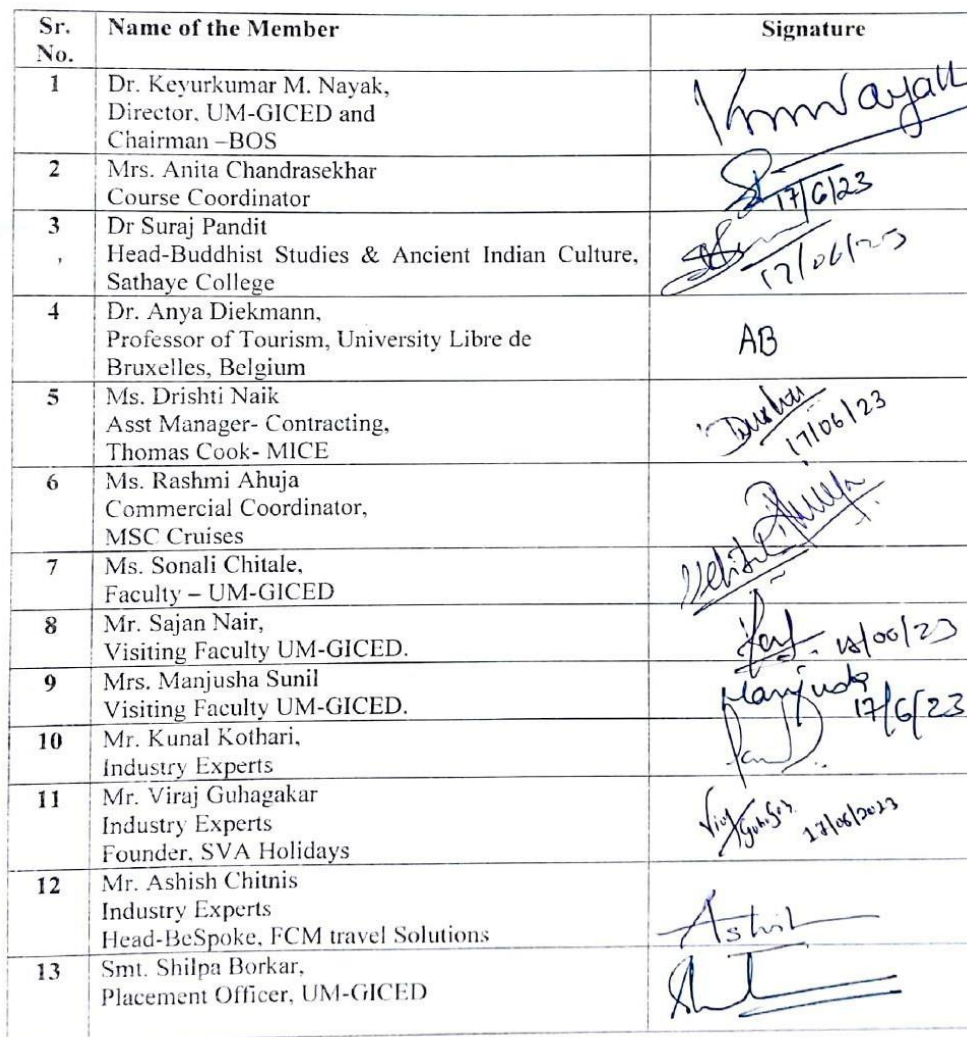 Sr. No. Name of the Member Signature
1 Dr. Keyurkumar M. Nayak,
Director, UM-GICED and
Chairman –BOS
KmNayak
2 Mrs. Anita Chandrasekhar
Course Coordinator
17/6/23
3 Dr Suraj Pandit
Head-Buddhist Studies & Ancient Indian Culture,
Sathaye College
17/06/23
4 Dr. Anya Diekmann,
Professor of Tourism, University Libre de
Bruxelles, Belgium
AB
5 Ms. Drishti Naik
Asst Manager- Contracting,
Thomas Cook- MICE
17/06/23
6 Ms. Rashmi Ahuja
Commercial Coordinator,
MSC Cruises
7 Ms. Sonali Chitale,
Faculty – UM-GICED
8 Mr. Sajan Nair,
Visiting Faculty UM-GICED.
9 Mrs. Manjusha Sunil
Visiting Faculty UM-GICED.
Manjusha
17/6/23
10 Mr. Kunal Kothari,
Industry Experts
11 Mr. Viraj Guhagakar
Industry Experts
Founder, SVA Holidays
17/06/2023
12 Mr. Ashish Chitnis
Industry Experts
Head-BeSpoke, FCM travel Solutions
13 Smt. Shilpa Borkar,
Placement Officer, UM-GICED